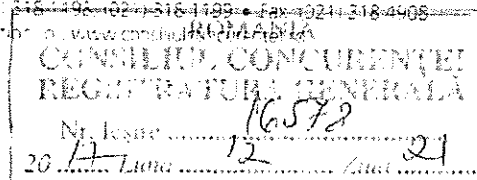 318 1198 (021) 318 1199 • Fax (021) 318 4905
ROMÂNIA
CONSILIUL CONCURENŢEI
REGISTRATURA GENERALĂ
Nr. Ieşire ........ 16578
20 17 Luna 12 Ziua 21